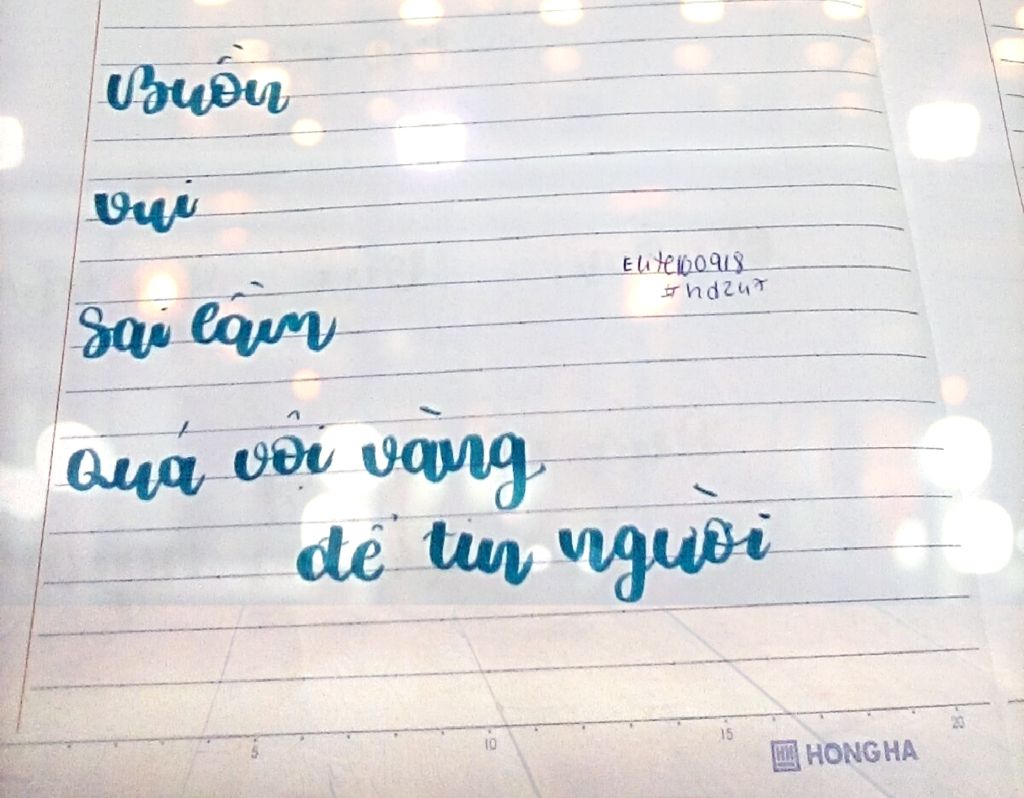 Buồn
vui
Sai lầm
Elite100918
#hd247
Quá vội vàng
để tin người
5 10 15 20
HH HONG HA